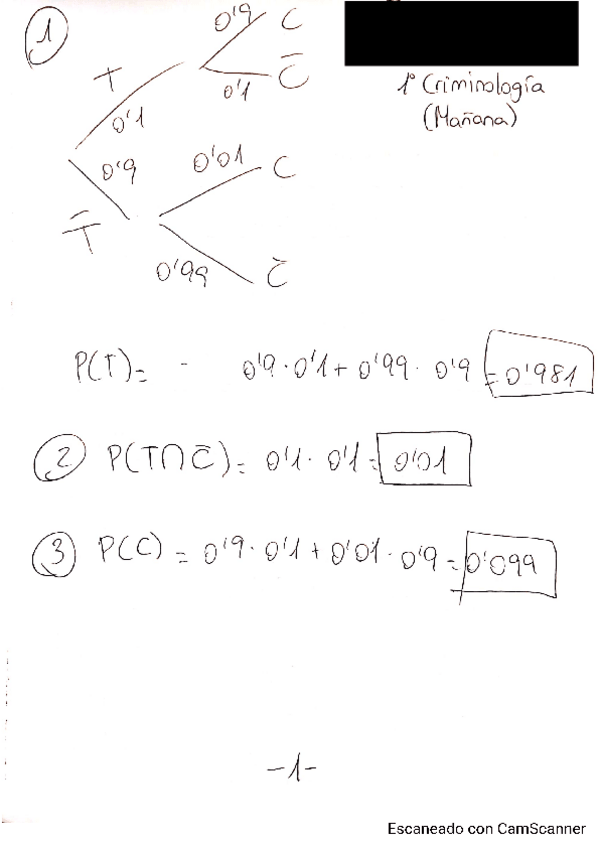 1
0'9 C
T 0'1 C̄
0'1
1º Criminología
(Mañana)
0'9 0'01 C
T̄
0'99 C̄
P(T)= - 0'9 · 0'1 + 0'99 · 0'9 = 0'981
2 P(T∩C̄) = 0'1 · 0'1 = 0'01
3 P(C) = 0'9 · 0'1 + 0'01 · 0'9 = 0'099
-1-
Escaneado con CamScanner